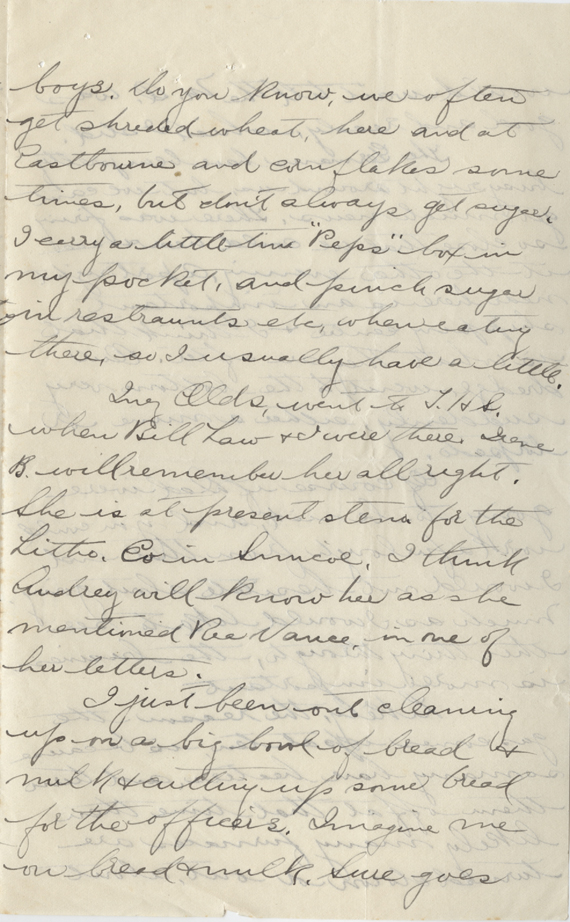 boys. Do you know, we often
get shreded wheat, here and at
Eastbourne and cornflakes some
times, but don't always get sugar.
I carry a little tin "Peps" box in
my pocket, and pinch sugar
in restraunts etc, when eating
there, so I usually have a little.
Inez Olds, went to T.H.S.
when Bill Law & I were there. Irene
B. will remember her all right.
She is at present steno for the
Litho. Co in Simcoe. I think
Audrey will know her as she
mentioned Rea Vance in one of
her letters.
I just been out cleaning
up on a big bowl of bread &
milk & cutting up some bread
for the officers. Imagine me
on bread & milk. Sure goes